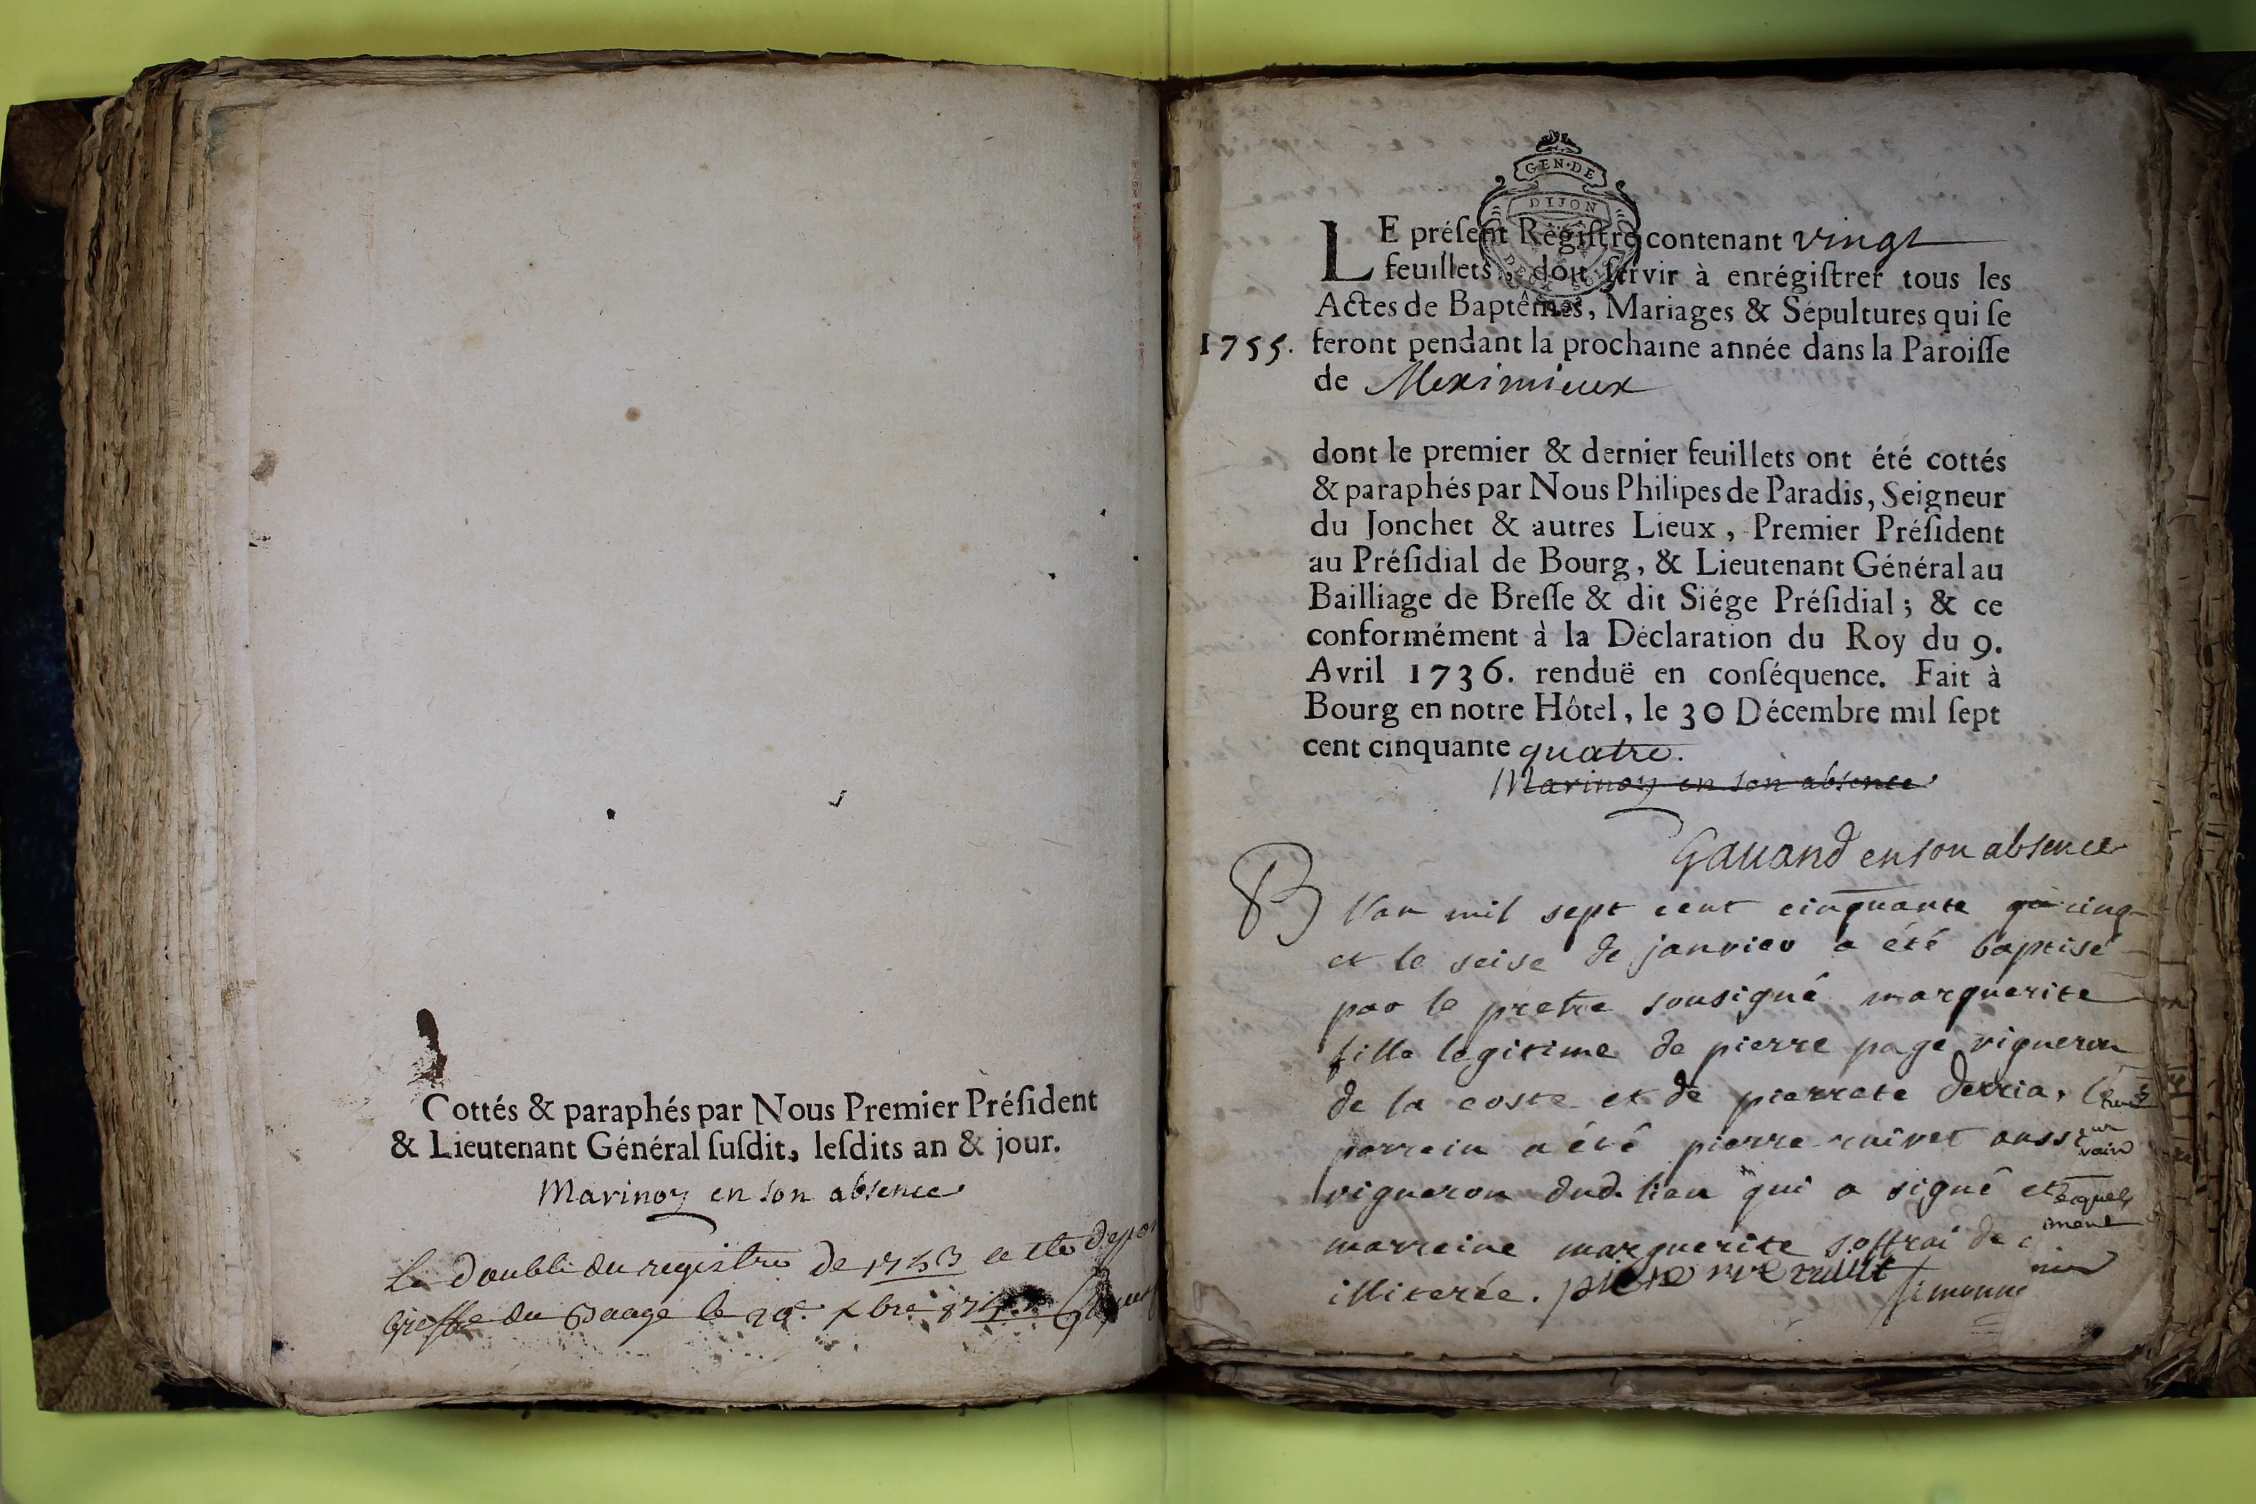 Cottés & paraphés par Nous Premier Préſident
& Lieutenant Général ſuſdit, leſdits an & jour.
Marinoz en son absence
Le double du registre de 1753 a ete depo
Greffe du le 20e xbre
GEN·DE
DIJON
LE préſent Régiſtre contenant vingt
feuillets, doit ſervir à enrégiſtrer tous les
Actes de Baptêmes, Mariages & Sépultures qui ſe
1755. feront pendant la prochaine année dans la Paroiſſe
de Meximieux
dont le premier & dernier feuillets ont été cottés
& paraphés par Nous Philipes de Paradis, Seigneur
du Jonchet & autres Lieux, Premier Préſident
au Préſidial de Bourg, & Lieutenant Général au
Bailliage de Breſſe & dit Siége Préſidial; & ce
conformément à la Déclaration du Roy du 9.
Avril 1736. renduë en conſéquence. Fait à
Bourg en notre Hôtel, le 30 Décembre mil ſept
cent cinquante quatre.
Marinoz en son absence
Gauand en son absence
B l'an mil sept cent cinquante cinq
et le seise de janvier a été baptisé
par le pretre sousigné marguerite
fille legitime de pierre page vigneron
de la coste et de pierrete derria, le
parrein a été pierre ruivet aussi
vigneron dud. lieu qui a signé et
marreine marguerite soffrai de
illiterée. simonni